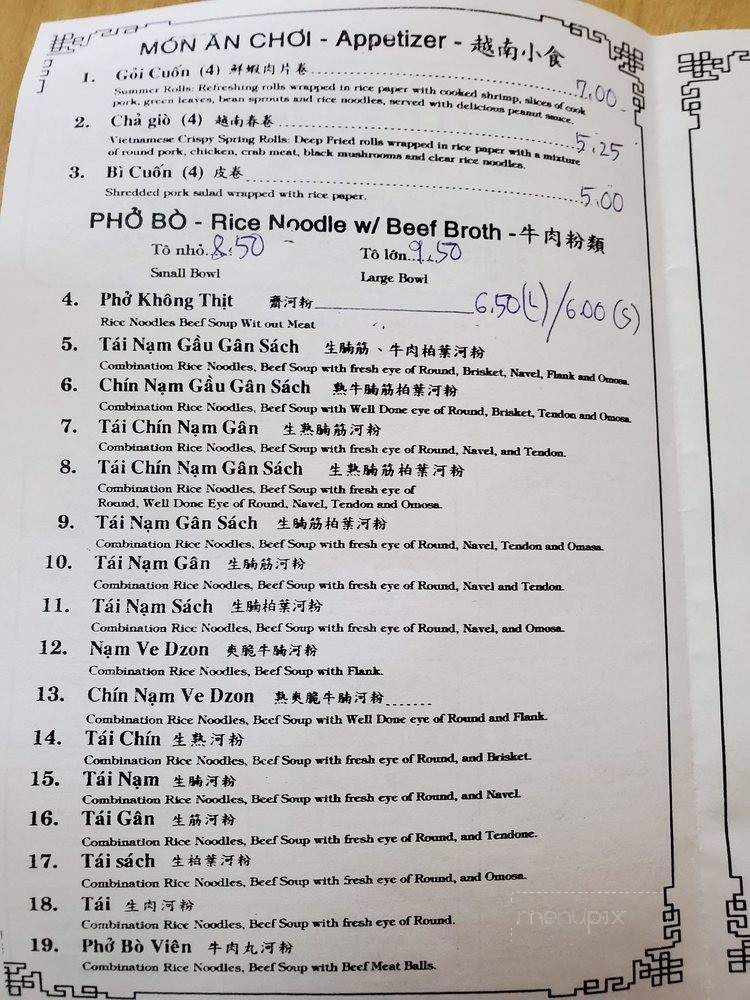 MÓN ĂN CHƠI - Appetizer - 越南小食
1. Gỏi Cuốn (4) 鮮蝦肉片卷 7.00
Summer Rolls: Refreshing rolls wrapped in rice paper with cooked shrimp, slices of cook
pork, green leaves, bean sprouts and rice noodles, served with delicious peanut sauce.
2. Chả giò (4) 越南春卷 5.25
Vietnamese Crispy Spring Rolls: Deep Fried rolls wrapped in rice paper with a mixture
of round pork, chicken, crab meat, black mushrooms and clear rice noodles.
3. Bì Cuốn (4) 皮卷 5.00
Shredded pork salad wrapped with rice paper.
PHỞ BÒ - Rice Noodle w/ Beef Broth - 牛肉粉類
Tô nhỏ 8.50 Tô lớn 9.50
Small Bowl Large Bowl
4. Phở Không Thịt 齋河粉 6.50(L)/6.00(S)
Rice Noodles Beef Soup Wit out Meat
5. Tái Nạm Gầu Gân Sách 生腩筋、牛肉柏葉河粉
Combination Rice Noodles, Beef Soup with fresh eye of Round, Brisket, Navel, Flank and Omosa.
6. Chín Nạm Gầu Gân Sách 熟牛腩筋柏葉河粉
Combination Rice Noodles, Beef Soup with Well Done eye of Round, Brisket, Tendon and Omosa.
7. Tái Chín Nạm Gân 生熟腩筋河粉
Combination Rice Noodles, Beef Soup with fresh eye of Round, Navel, and Tendon.
8. Tái Chín Nạm Gân Sách 生熟腩筋柏葉河粉
Combination Rice Noodles, Beef Soup with fresh eye of
Round, Well Done Eye of Round, Navel, Tendon and Omosa.
9. Tái Nạm Gân Sách 生腩筋柏葉河粉
Combination Rice Noodles, Beef Soup with fresh eye of Round, Navel, Tendon and Omasa.
10. Tái Nạm Gân 生腩筋河粉
Combination Rice Noodles, Beef Soup with fresh eye of Round, Navel and Tendon.
11. Tái Nạm Sách 生腩柏葉河粉
Combination Rice Noodles, Beef Soup with fresh eye of Round, Navel, and Omosa.
12. Nạm Ve Dzon 爽脆牛腩河粉
Combination Rice Noodles, Beef Soup with Flank.
13. Chín Nạm Ve Dzon 熟爽脆牛腩河粉
Combination Rice Noodles, Beef Soup with Well Done eye of Round and Flank.
14. Tái Chín 生熟河粉
Combination Rice Noodles, Beef Soup with fresh eye of Round, and Brisket.
15. Tái Nạm 生腩河粉
Combination Rice Noodles, Beef Soup with fresh eye of Round, and Navel.
16. Tái Gân 生筋河粉
Combination Rice Noodles, Beef Soup with fresh eye of Round, and Tendone.
17. Tái sách 生柏葉河粉
Combination Rice Noodles, Beef Soup with fresh eye of Round, and Omosa.
18. Tái 生肉河粉
Combination Rice Noodles, Beef Soup with fresh eye of Round.
19. Phở Bò Viên 牛肉丸河粉
Combination Rice Noodles, Beef Soup with Beef Meat Balls.
menupix